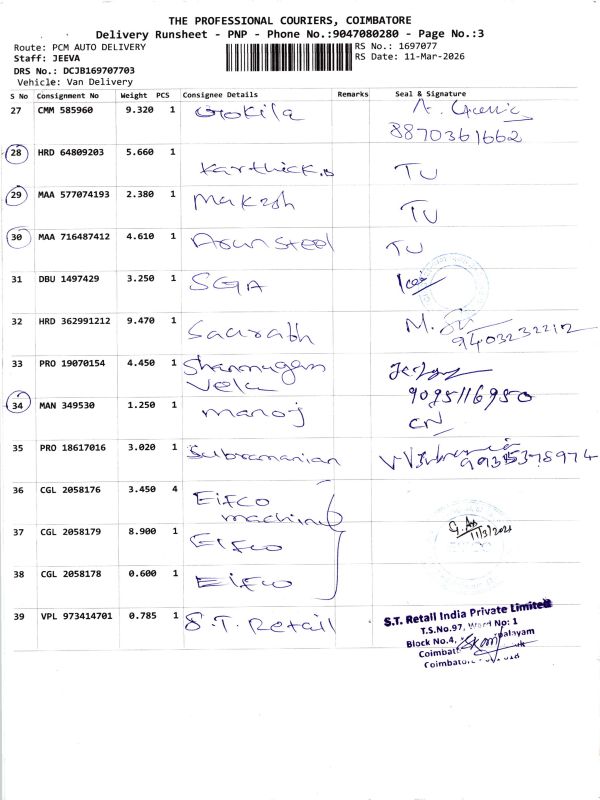 THE PROFESSIONAL COURIERS, COIMBATORE
Delivery Runsheet - PNP - Phone No.:9047080280 - Page No.:3
Route: PCM AUTO DELIVERY
RS No.: 1697077
Staff: JEEVA
RS Date: 11-Mar-2026
DRS No.: DCJB169707703
Vehicle: Van Delivery
S No Consignment No Weight PCS Consignee Details Remarks Seal & Signature
27 CMM 585960 9.320 1 Gokila
8870361662
28 HRD 64809203 5.660 1 Karthick.s TU
29 MAA 577074193 2.380 1 Makesh TU
30 MAA 716487412 4.610 1 Arun Steel TU
31 DBU 1497429 3.250 1 SGA
32 HRD 362991212 9.470 1 Saurabh M.
9403232212
33 PRO 19070154 4.450 1 Shanmugam
Vela
9095116950
34 MAN 349530 1.250 1 manoj CN
35 PRO 18617016 3.020 1 Subramanian
36 CGL 2058176 3.450 4 Eifco
machine
37 CGL 2058179 8.900 1 Eifco 11/3/2026
38 CGL 2058178 0.600 1 Eifco
39 VPL 973414701 0.785 1 S.T. Retail
S.T. Retail India Private Limited
T.S.No.97, Ward No: 1
Block No.4, palayam
Coimbat
Coimbatore